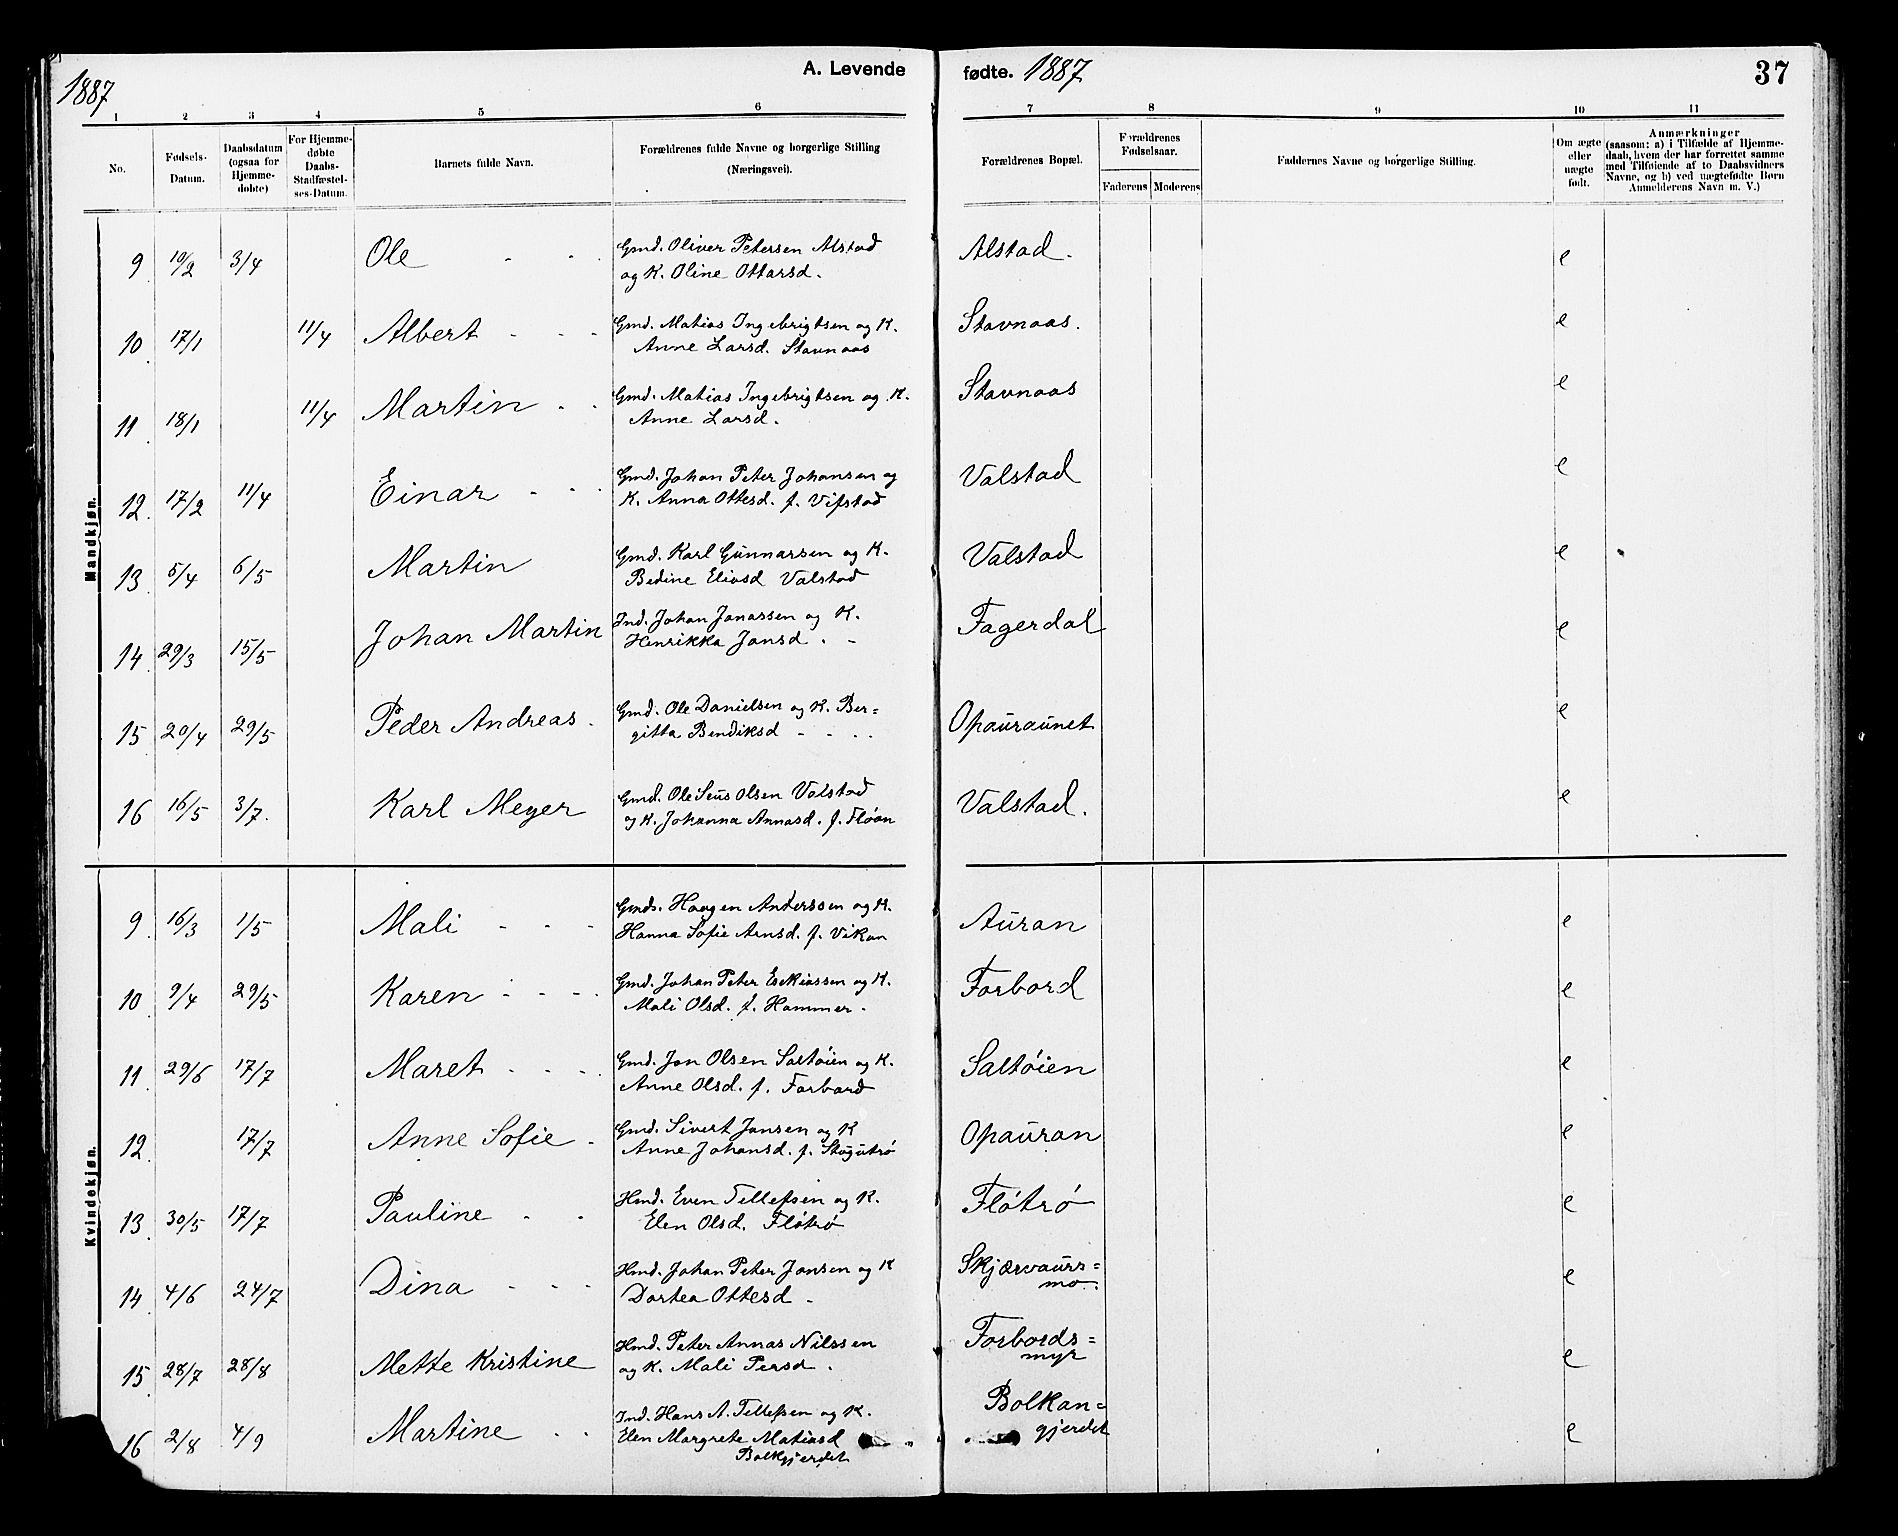 1887
A. Levende
fødte. 1887
37
1 2 3 4 5 6 7 8 9 10 11
No.
Fødsels-
Datum.
Daabsdatum
(ogsaa for
Hjemme-
døbte)
For Hjemme-
døbte
Daabs-
Stadfæstel-
ses-Datum.
Barnets fulde Navn.
Forældrenes fulde Navne og borgerlige Stilling
(Næringsvei).
Forældrenes Bopæl.
Forældrenes
Fødselsaar.
Faderens Moderens
Faddernes Navne og borgerlige Stilling.
Om ægte
eller
uægte
født.
Anmærkninger
(saasom: a) i Tilfælde af Hjemme-
daab, hvem der har forrettet samme
med Tilføiende af to Daabsvidners
Navne, og b) ved uægtefødte Børn
Anmelderens Navn m. V.)
Mandkjøn.
9 10/2 3/4 Ole - - Gmd. Oliver Petersen Alstad Alstad. e
og K. Oline Ottarsd.
10 17/1 11/4 Albert - - - Gmd. Matias Ingebrigtsen og K. Stavnaas. e
Anne Larsd. Stavnaas
11 18/1 11/4 Martin - - Gmd. Matias Ingebrigtsen og K. Stavnaas e
Anne Larsd.
12. 17/2 11/4 Einar - - - Gmd. Johan Peter Johansen og Valstad e
K. Anna Ottesd. f. Vifstad
13. 5/4 6/5 Martin Gmd. Karl Gunnarsen og K. Valstad e
Bedine Eliasd Valstad
14 29/3 15/5 Johan Martin Ind. Johan Jonassen og K. Fagerdal e
Henrikka Jonsd. -
15 20/4 29/5 Peder Andreas. Gmd. Ole Danielsen og K. Ber= Opauraunet e
gitta Bendiksd - - - -
16 16/5 3/7. Karl Meyer Gmd. Ole Seus Olsen Valstad Valstad. e
og K. Johanna Annasd. f. Fløan
Kvindekjøn.
9 16/3 1/5 Mali - - - Gmds. Haagen Anderssen og K. Auran e
Hanna Sofie Arnsd. f. Vikan
10 9/4 29/5 Karen - - - - Gmd. Johan Peter Esekiassen og K. Forbord e
Mali Olsd. f. Hammer.
11 29/6 17/7 Maret - - - - Gmd. Jon Olsen Saltøien og K. Saltøien e
Anne Olsd. f. Forbord
12. 17/7 Anne Sofie - Gmd. Sivert Jansen og K Opauran e
Anne Johansd. f. Stugutrø
13. 30/5 17/7 Pauline - - Hmd. Even Tellefsen og K. Fløtrø e
Elen Olsd. Fløtrø
14 4/6 24/7 Dina - - - Hmd. Johan Peter Jonsen og K Skjærvaurs= e
Dortea Ottesd - mo.
15 28/7 28/8 Mette Kristine Hmd. Peter Annas Nilssen Forbords= e
og K. Mali Persd. myr
16 2/8 4/9 Martine - - Ind. Hans A. Tellefsen og K. Bolkan= e
Elen Margrete Matiasd gjerdet
Bolkgjerdet